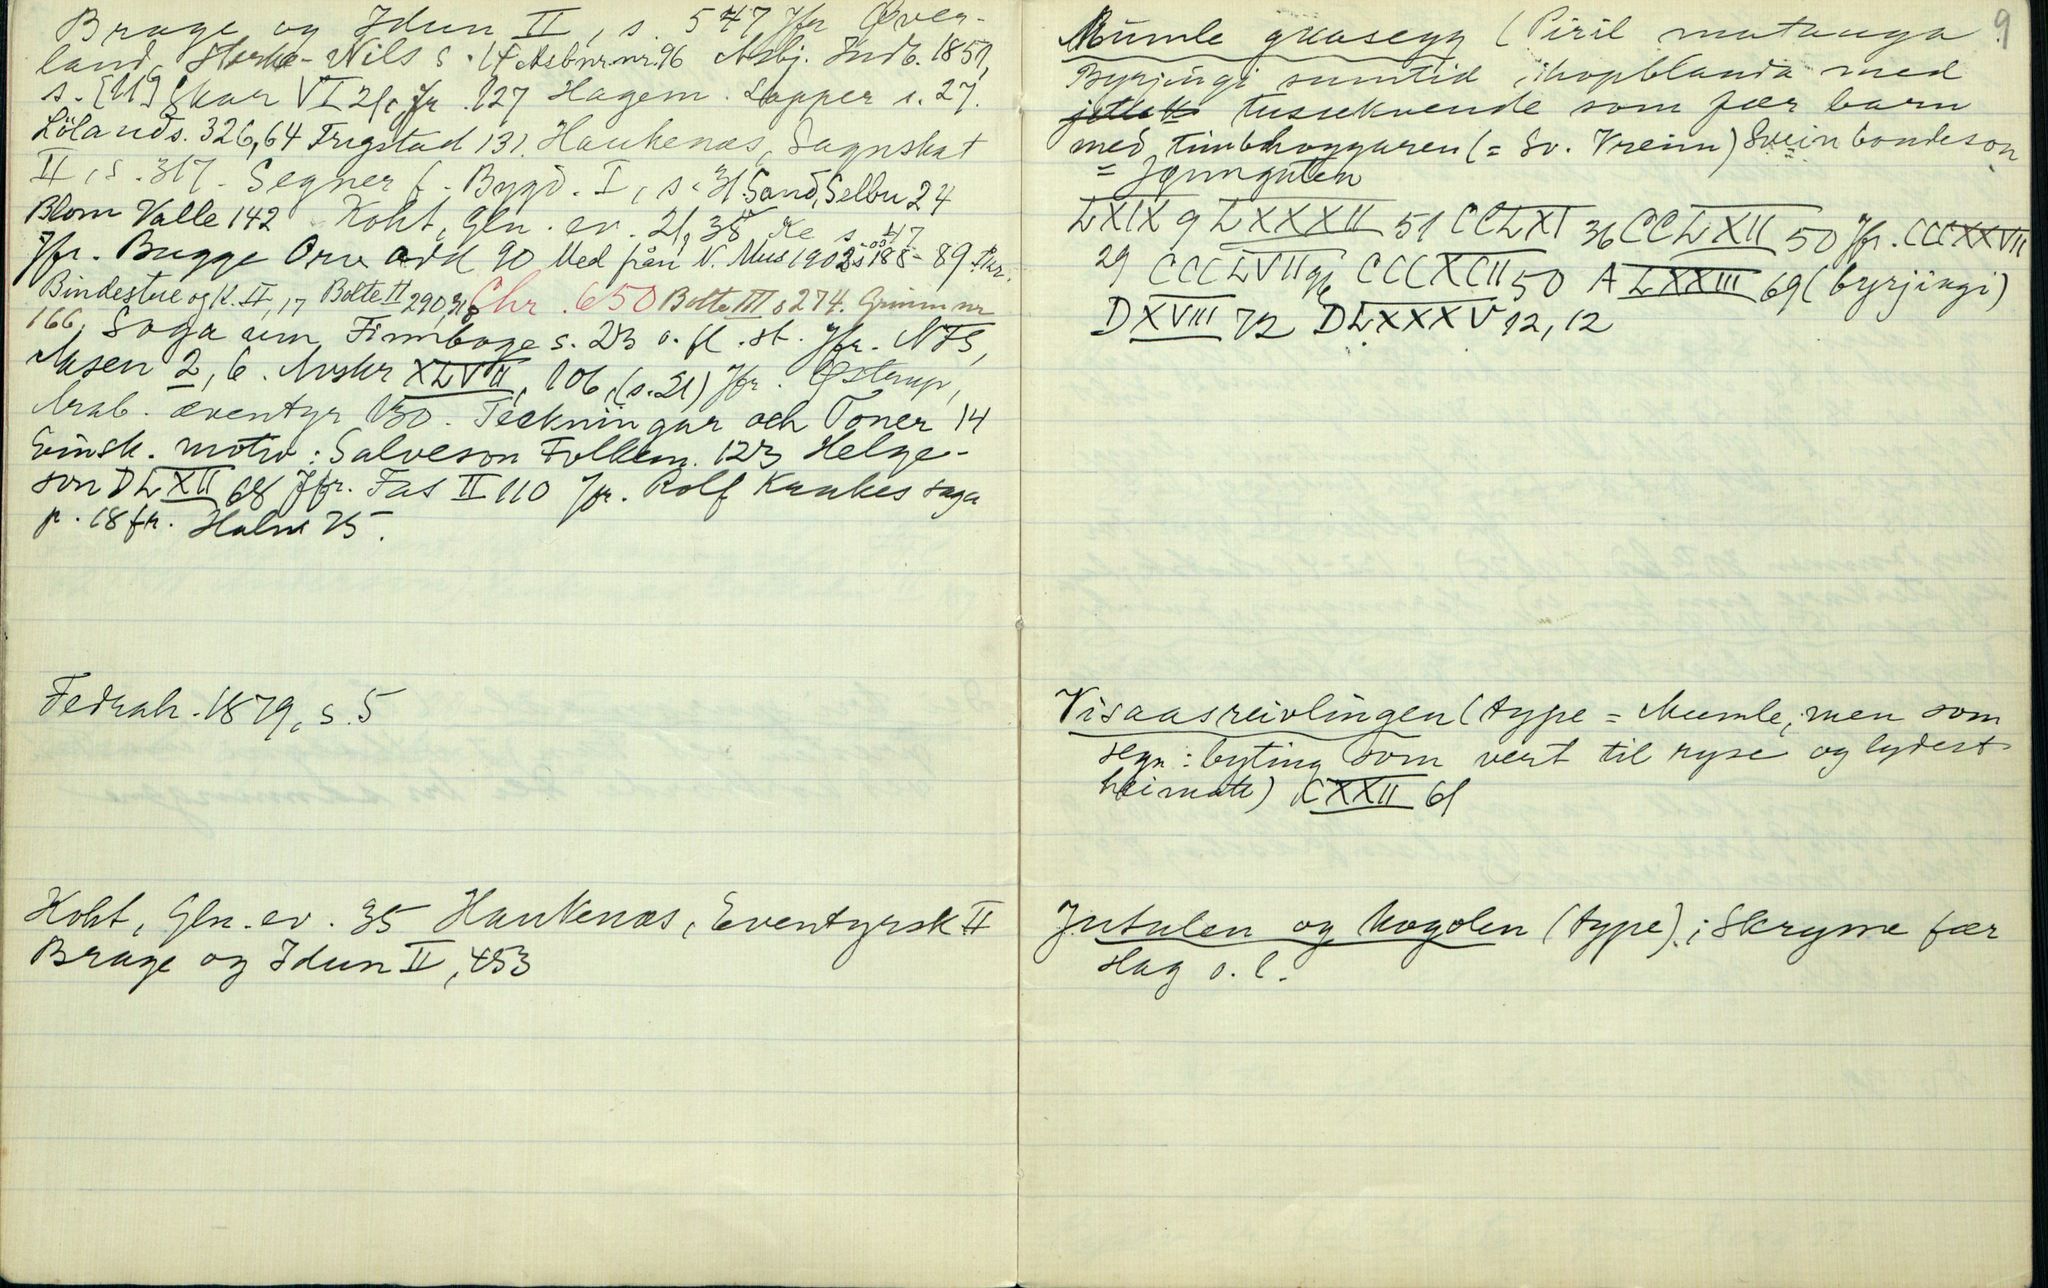 Brage og Idun II, s. 547 Jfr Øver-
land, Horke-Nils s. 14 Asb nr. nr. 96 Asbj. Indb. 1851,
s. [11] Skar VI 21, Jfr. 127 Hagem. Lapper s. 27.
Lölands. 326, 64 Frigstad 131. Haukenæs, Sagnskat
II, s. 317. Segner f. Bygd. I, s. 31. Sand, Selbu 24
Blom Valle 142 Koht, Gln. ev. 21, 38 s. 47
Jfr. Bugge Orv. Odd 90 Med från N. Mus 1902 s 188-89
Bindestue og K. II, 17 Bolte II 290, Chr. 650 Bolte III s 274. Grimm nr
166, Soga um Finnboge s. 23 o. fl. st. Jfr. NFS,
Aasen 2, 6. Mskr XLVII, 106, (s. 21) Jfr. Østrup,
Arab. æventyr 130. Teckningar och Toner 14
Einsk. motiv: Salveson Folkem. 123 Helge-
son DLXII 68 Jfr. Fas II 110 Jfr. Rolf Krakes saga
p. 18 fr. Holm 25.
Fedrah. 1879, s. 5
Koht, Gln. ev. 35 Haukenæs, Eventyrsk II
Brage og Idun II, 453
9
Mumle gaasegg (Piril matauga
Byrjingi sumtid ihopblanda med
tussekvende som fær barn
med timbhoggaren (= Sv. Vreim) Svein bondeson
= Jønnguten
LXIX 9 LXXXII 51 CCLXI 36 CCLXII 50 Jfr. CCCXXVII
29 CCCLVII 96 CCCXCII 50 A LXXIII 69 (byrjingi)
DXVIII 72 DLXXXV 12, 12
Visaasreivlingen (type = Mumle, men som
segn: byting som vert til ryse og lydest
heimatt) CXXII 61
Jutulen og kogolen (type).; Skryme fær
slag o. l.